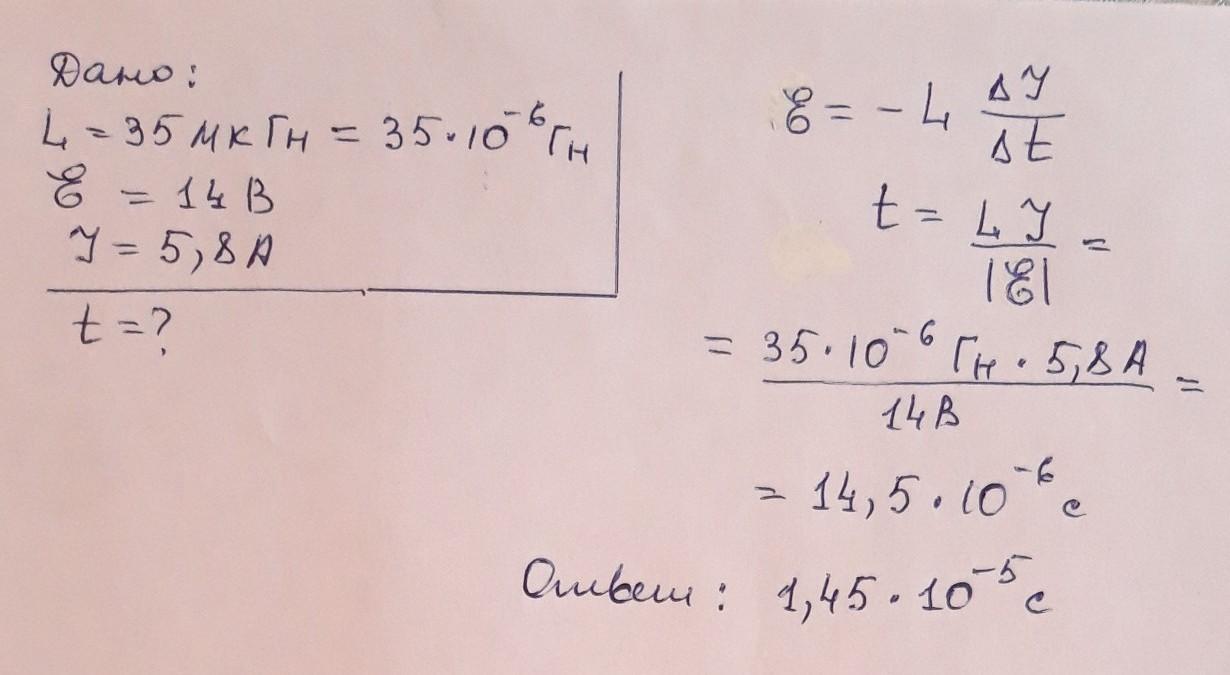 Дано:
L = 35 мкГн = 35·10⁻⁶ Гн
ℰ = 14 В
I = 5,8 А
t = ?
ℰ = - L ΔI/Δt
t = L I/|ℰ| =
= 35·10⁻⁶ Гн · 5,8 А/14 В =
= 14,5·10⁻⁶ с
Ответ: 1,45·10⁻⁵ с